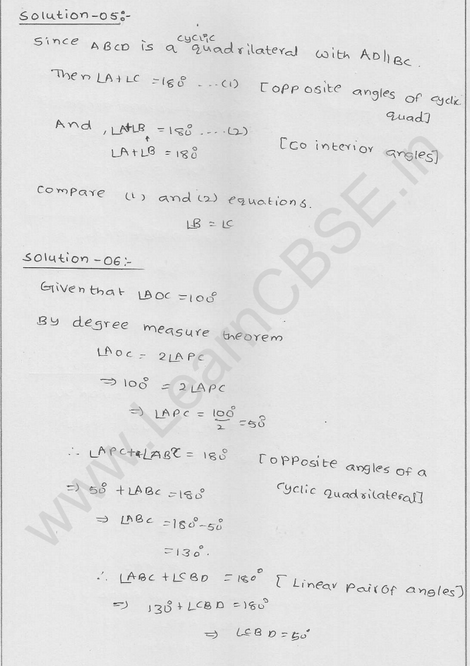 Solution-05:-
Since ABCD is a cyclic quadrilateral with AD||BC.
Then ∠A+∠C =180° ...(1) [opposite angles of cyclic quad]
And, ∠A+∠B =180° ....(2)
∠A+∠B =180° [Co interior angles]
Compare (1) and (2) equations.
∠B = ∠C
Solution-06:-
Given that ∠AOC =100°
By degree measure theorem
∠AOC = 2∠APC
⇒ 100° = 2∠APC
⇒ ∠APC = 100°/2 =50°
∴ ∠APC+∠ABC = 180° [opposite angles of a
cyclic quadrilateral]
⇒ 50° +∠ABC =180°
⇒ ∠ABC =180°-50°
=130°.
∴ ∠ABC +∠CBD =180° [Linear pair of angles]
⇒ 130°+∠CBD =180°
⇒ ∠CBD =50°
www.LearnCBSE.in